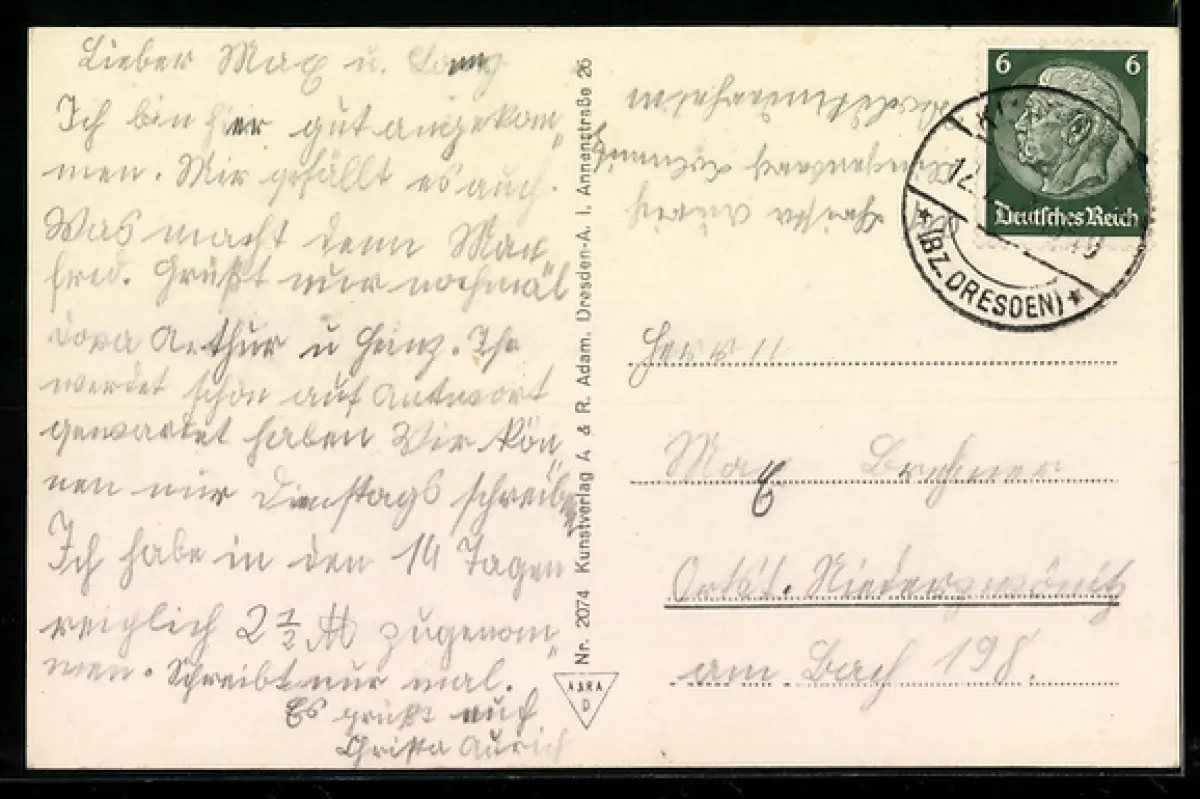 Lieber Max u.
Ich bin hier gut angekom„
men. Mir gefällt es auch.
Was macht denn Man„
fred. Grüßt nur nochmal
Arthur u Heinz. Ihr
werdet schon auf Antwort
gewartet haben Wir kön„
nen nur Dienstags schreiben
Ich habe in den 14 Tagen
reichlich 2 1/2 ℔ zugenom„
men. Schreibt nur mal.
Es grüßt euch
Christa Aurich
Nr. 2074 Kunstverlag A & R. Adam, Dresden-A. I, Annenstraße 26
A&RA
D
Christa Aurich
6 6
Deutsches Reich
12.
* (BZ. DRESDEN) *
Herrn
Max
Ortst. Niederzwönitz
am Bach 198.